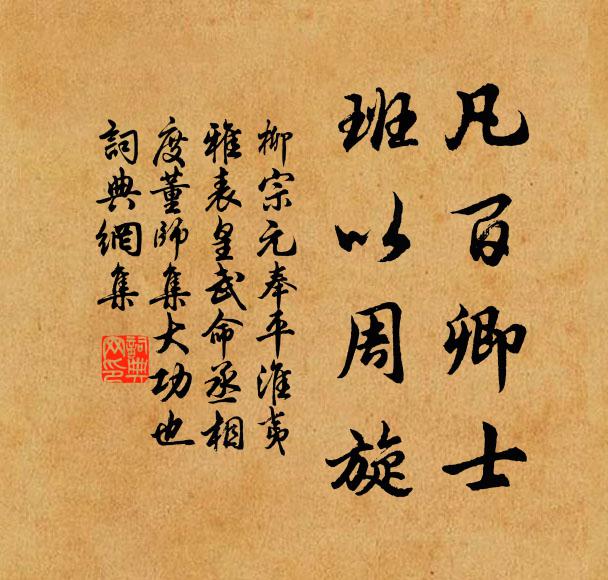 凡百卿士
班以周旋
柳宗元奉平淮夷
雅表皇武命丞相
度董師集大功也
詞典網集
詞典
网印